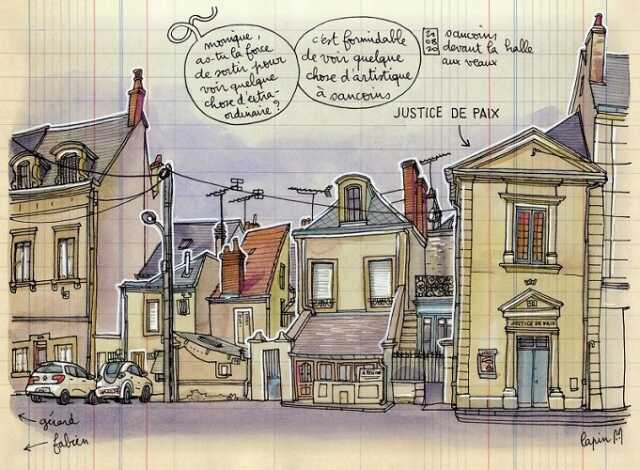 monique,
as-tu la force
de sortir pour
voir quelque
chose d'extra-
ordinaire?
c'est formidable
de voir quelque
chose d'artistique
à sancoins
29
08
20
sancoins
devant la halle
aux veaux
JUSTICE DE PAIX
JUSTICE DE PAIX
gérard
fabien
lapin